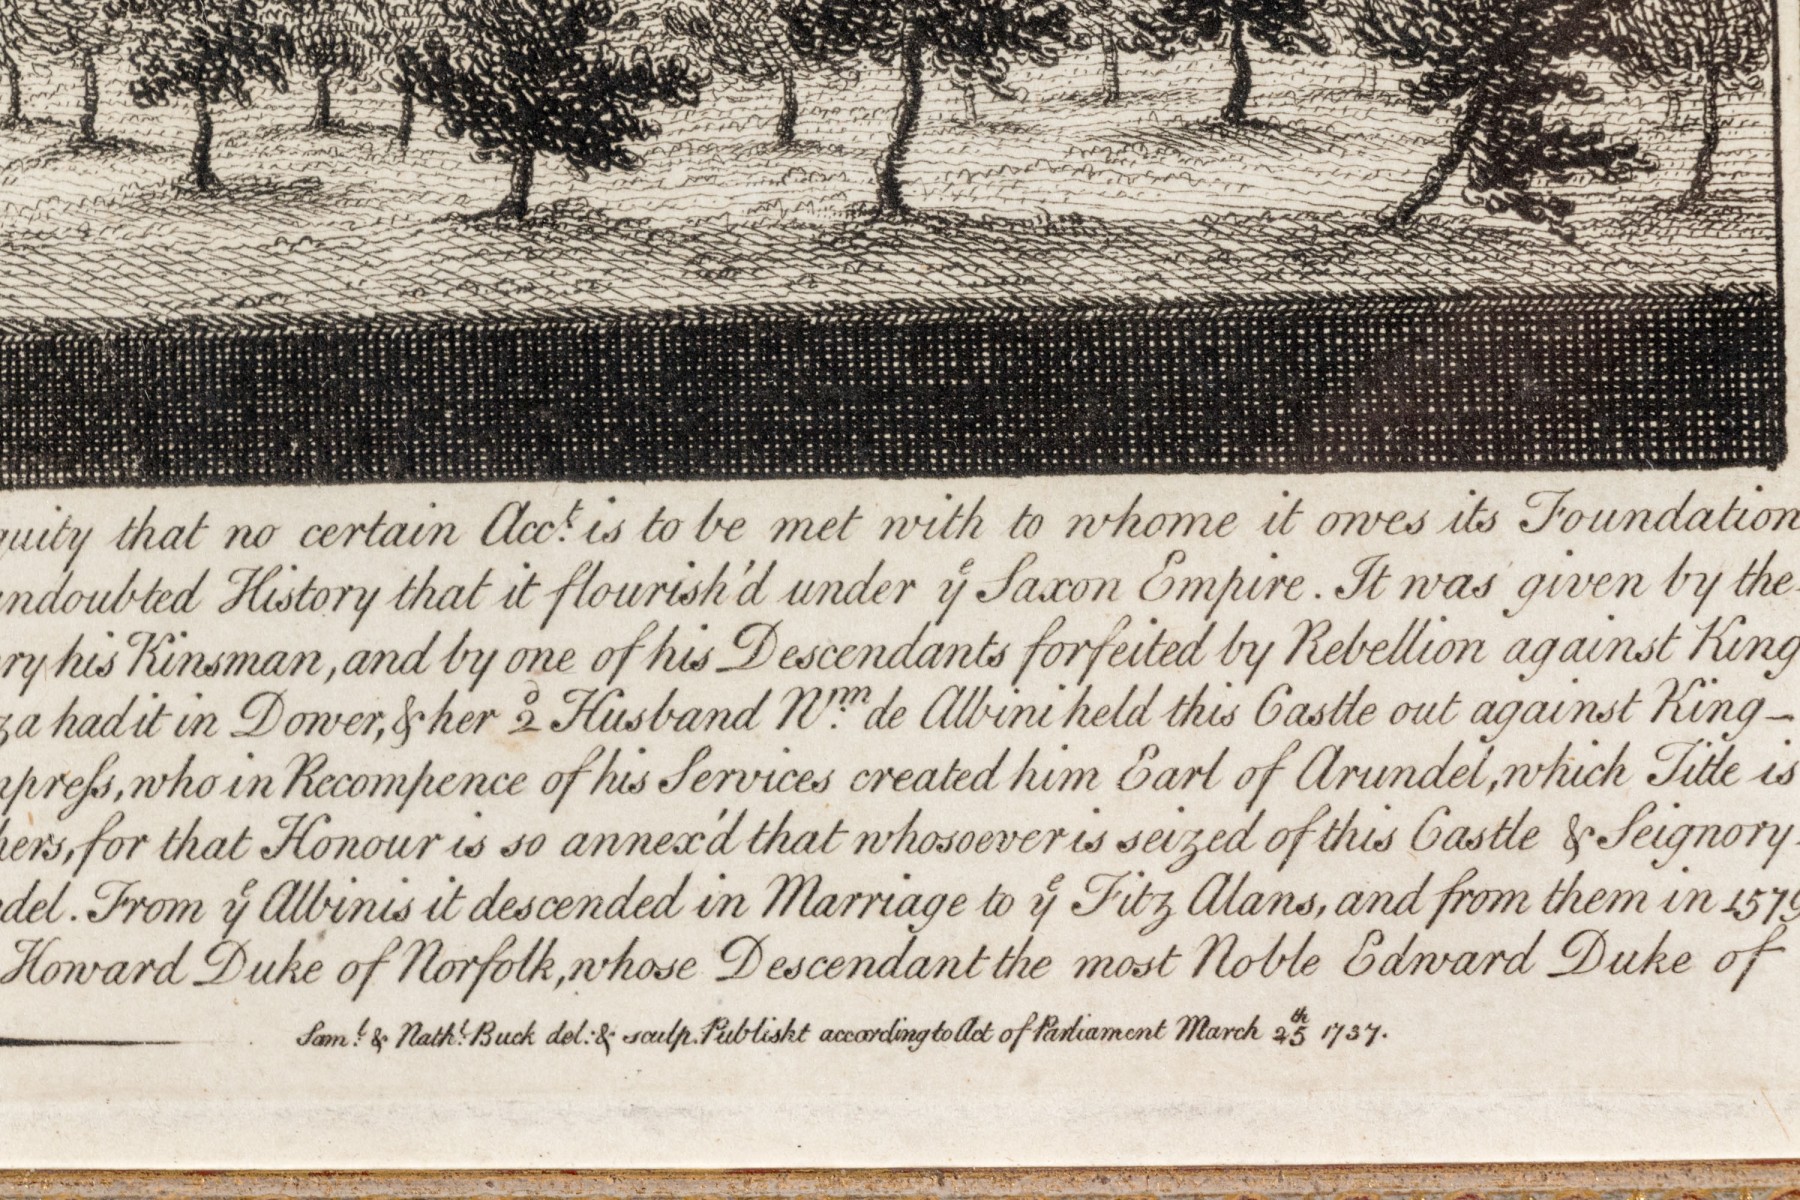 quity that no certain Acct. is to be met with to whome it owes its Foundation
undoubted History that it flourish'd under ye Saxon Empire. It was given by the
ry his Kinsman, and by one of his Descendants forfeited by Rebellion against King
za had it in Dower, & her 2d Husband Wm. de Albini held this Castle out against King
mpreſs, who in Recompence of his Services created him Earl of Arundel, which Title is
hers, for that Honour is so annex'd that whosoever is seized of this Castle & Seignory
del. From ye Albinis it descended in Marriage to ye Fitz Alans, and from them in 1579
Howard Duke of Norfolk, whose Descendant the most Noble Edward Duke of
Saml. & Nathl. Buck del: & sculp. Publisht according to Act of Parliament March 25th 1737.